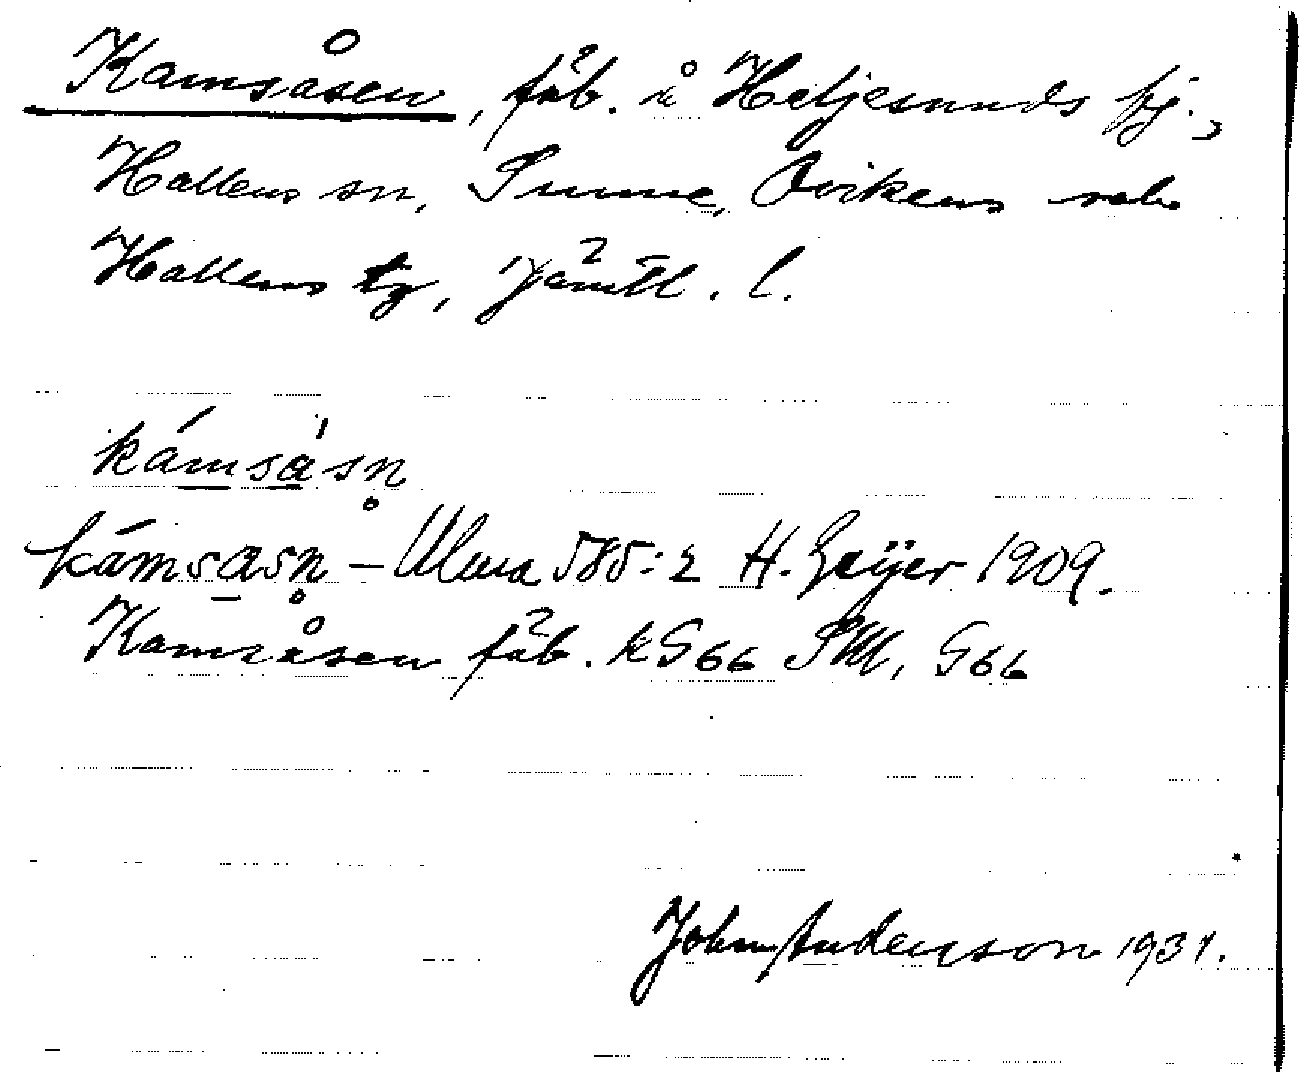 Kamsåsen, fäb. å Heljesunds fj.,
Hallens sn, Sunne, Ovikens och
Hallens tg, Jämtl. l.
kámsåsn̥
kámsasn̥ – Ulma 585:2 H. Geijer 1909.
Kamsåsen fäb. kG66 G66
John Andersson 1931.